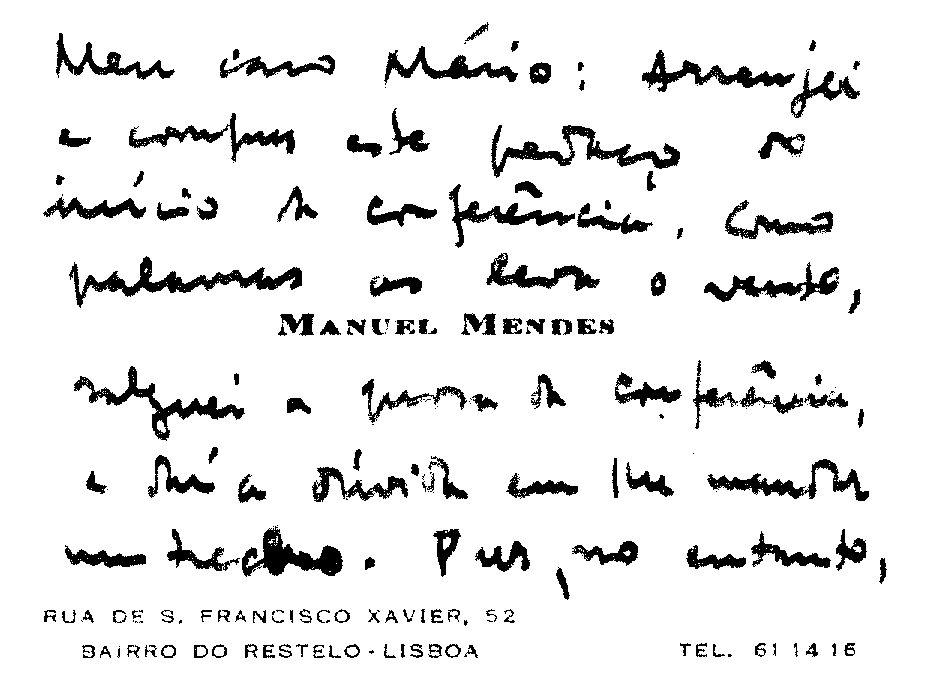 Meu caro Mário: Arranjei
e compus este pedaço do
início da conferência. Como
palavras as leva o vento,
MANUEL MENDES
rasguei a prosa da conferência,
e daí a dúvida em lhe mandar
um trecho. Pus, no entanto,
RUA DE S. FRANCISCO XAVIER, 52
BAIRRO DO RESTELO-LISBOA TEL. 61 14 16